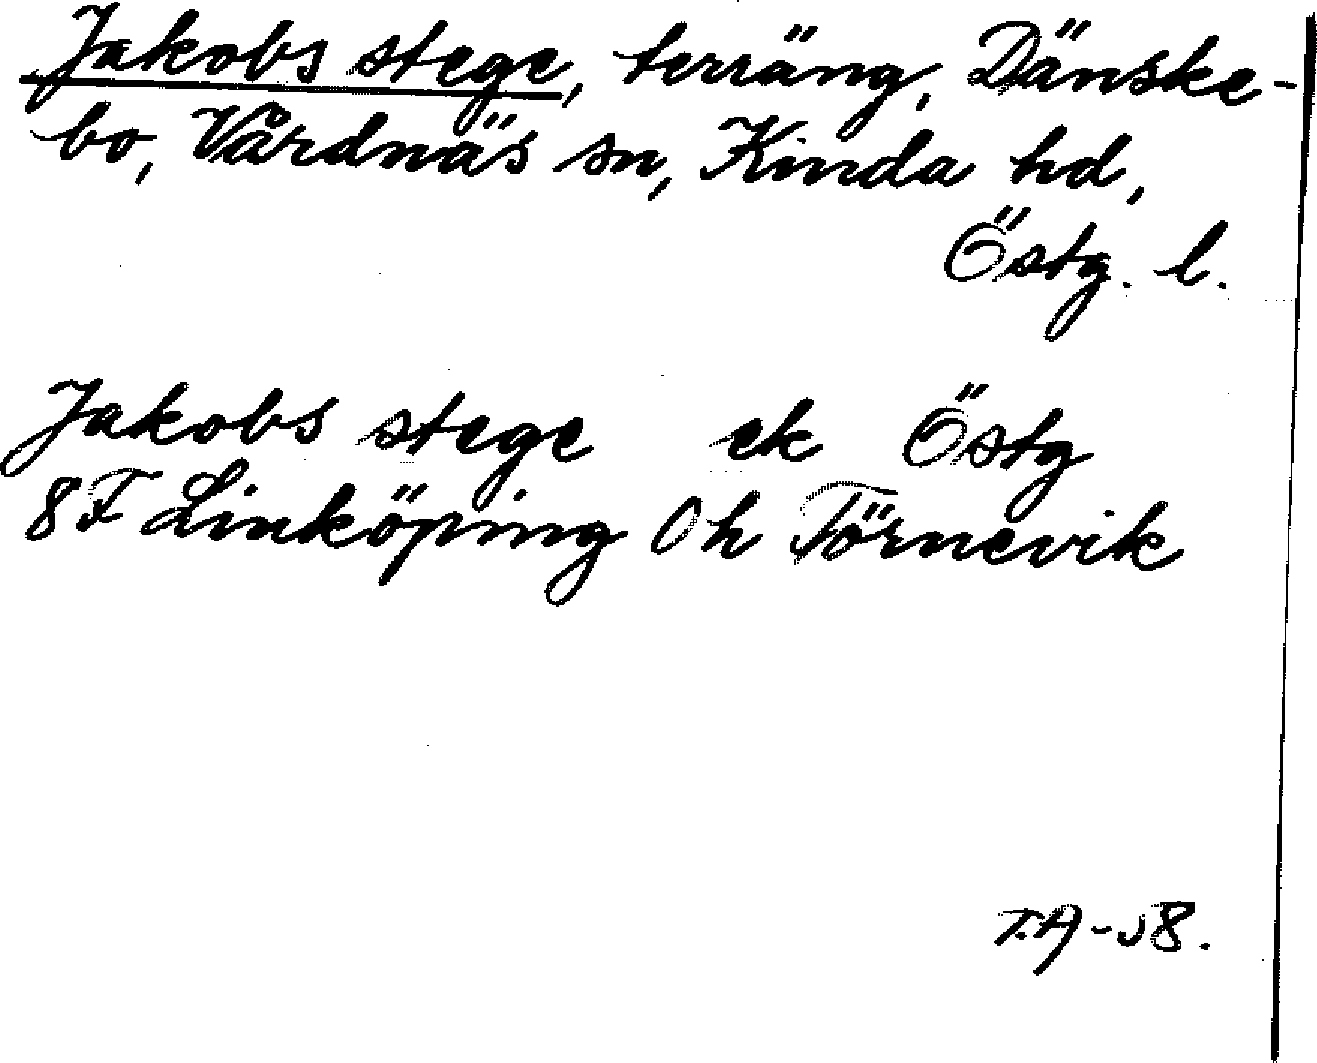 Jakobs stege, terräng, Dänske-
bo, Vårdnäs sn, Kinda hd,
Östg. l.
Jakobs stege ek Östg
8F Linköping 0h Törnevik
T.A-58.